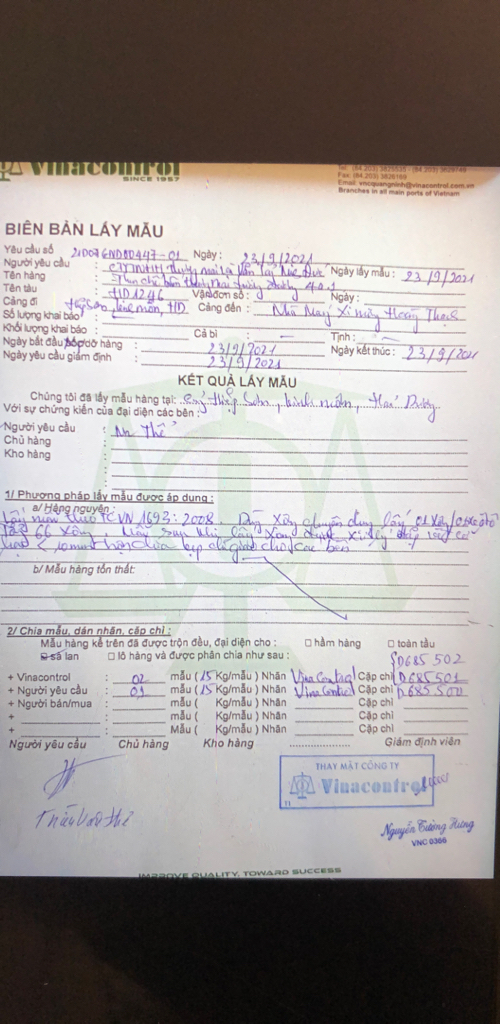 Vinacontrol
SINCE 1957
Tel: (84.203) 3825535 - (84.203) 3826149
Fax: (84.203) 3826169
Email: vncquangninh@vinacontrol.com.vn
Branches in all main ports of Vietnam
BIÊN BẢN LẤY MẪU
Yêu cầu số Ngày: 23/9/2021
Người yêu cầu : Ngày lấy mẫu: 23/9/2021
Tên hàng : Than
Tên tàu : HD1246 Vận đơn số: Ngày:
Cảng đi : Cảng đến: Nhà Máy Xi măng Hoàng Thạch
Số lượng khai báo :
Khối lượng khai báo: Cả bì : Tịnh :
Ngày bắt đầu dỡ hàng : 23/9/2021 Ngày kết thúc: 23/9/2021
Ngày yêu cầu giám định : 23/9/2021
KẾT QUẢ LẤY MẪU
Chúng tôi đã lấy mẫu hàng tại: Sơn, Kinh môn, Hải Dương
Với sự chứng kiến của đại diện các bên :
Người yêu cầu : Mr Thế
Chủ hàng :
Kho hàng :
1/ Phương pháp lấy mẫu được áp dụng :
a/ Hàng nguyên :
Lấy mẫu theo TCVN 1693:2008. Dùng xẻng chuyên dụng lấy 01 xẻng
66 xẻng
cho các bên
b/ Mẫu hàng tổn thất:
2/ Chia mẫu, dán nhãn, cặp chì :
Mẫu hàng kể trên đã được trộn đều, đại diện cho : □ hầm hàng □ toàn tàu
sà lan □ lô hàng và được phân chia như sau :
D685 502
+ Vinacontrol : 02 mẫu (15 Kg/mẫu) Nhãn VinaControl Cặp chì D685501
+ Người yêu cầu : 01 mẫu (15 Kg/mẫu) Nhãn VinaControl Cặp chì D685500
+ Người bán/mua : mẫu ( Kg/mẫu ) Nhãn Cặp chì
+ : mẫu ( Kg/mẫu ) Nhãn Cặp chì
+ : Mẫu ( Kg/mẫu ) Nhãn Cặp chì
Người yêu cầu Chủ hàng Kho hàng .................. Giám định viên
THAY MẶT CÔNG TY
Vinacontrol
Nguyễn Tường Hưng
VNC 0366
IMPROVE QUALITY, TOWARD SUCCESS